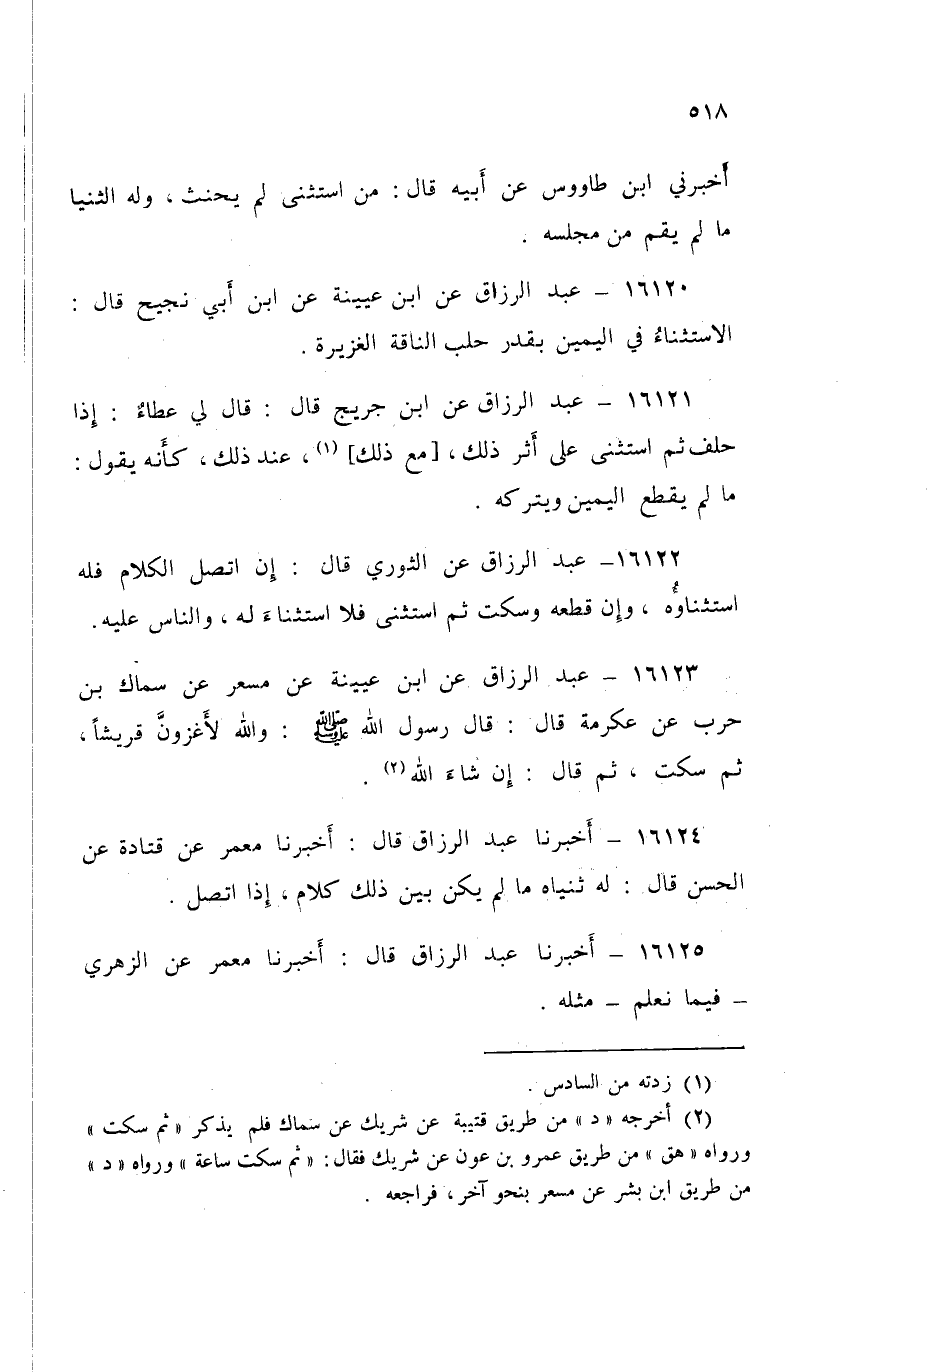 ٥١٨
أخبرني ابن طاووس عن أبيه قال : من استثنى لم يحنث ، وله الثنيا
ما لم يقم من مجلسه .
١٦١٢٠ – عبد الرزاق عن ابن عيينة عن ابن أبي نجيح قال :
الاستثناءُ في اليمين بقدر حلب الناقة الغزيرة .
١٦١٢١ – عبد الرزاق عن ابن جريج قال : قال لي عطاءٌ : إذا
حلف ثم استثنى على أثر ذلك ، [مع ذلك] (١) ، عند ذلك ، كأنه يقول :
ما لم يقطع اليمين ويتركه .
١٦١٢٢ – عبد الرزاق عن الثوري قال : إن اتصل الكلام فله
استثناؤُه ، وإن قطعه وسكت ثم استثنى فلا استثناءَ له ، والناس عليه .
١٦١٢٣ – عبد الرزاق عن ابن عيينة عن مسعر عن سماك بن
حرب عن عكرمة قال : قال رسول الله ﷺ : والله لأغزونَّ قريشاً ،
ثم سكت ، ثم قال : إن شاءَ الله (٢) .
١٦١٢٤ – أخبرنا عبد الرزاق قال : أخبرنا معمر عن قتادة عن
الحسن قال : له ثنياه ما لم يكن بين ذلك كلام ، إذا اتصل .
١٦١٢٥ – أخبرنا عبد الرزاق قال : أخبرنا معمر عن الزهري
– فيما نعلم – مثله .
(١) زدته من السادس .
(٢) أخرجه « د » من طريق قتيبة عن شريك عن سماك فلم يذكر « ثم سكت »
ورواه « هق » من طريق عمرو بن عون عن شريك فقال : « ثم سكت ساعة » ورواه « د »
من طريق ابن بشر عن مسعر بنحو آخر ، فراجعه .